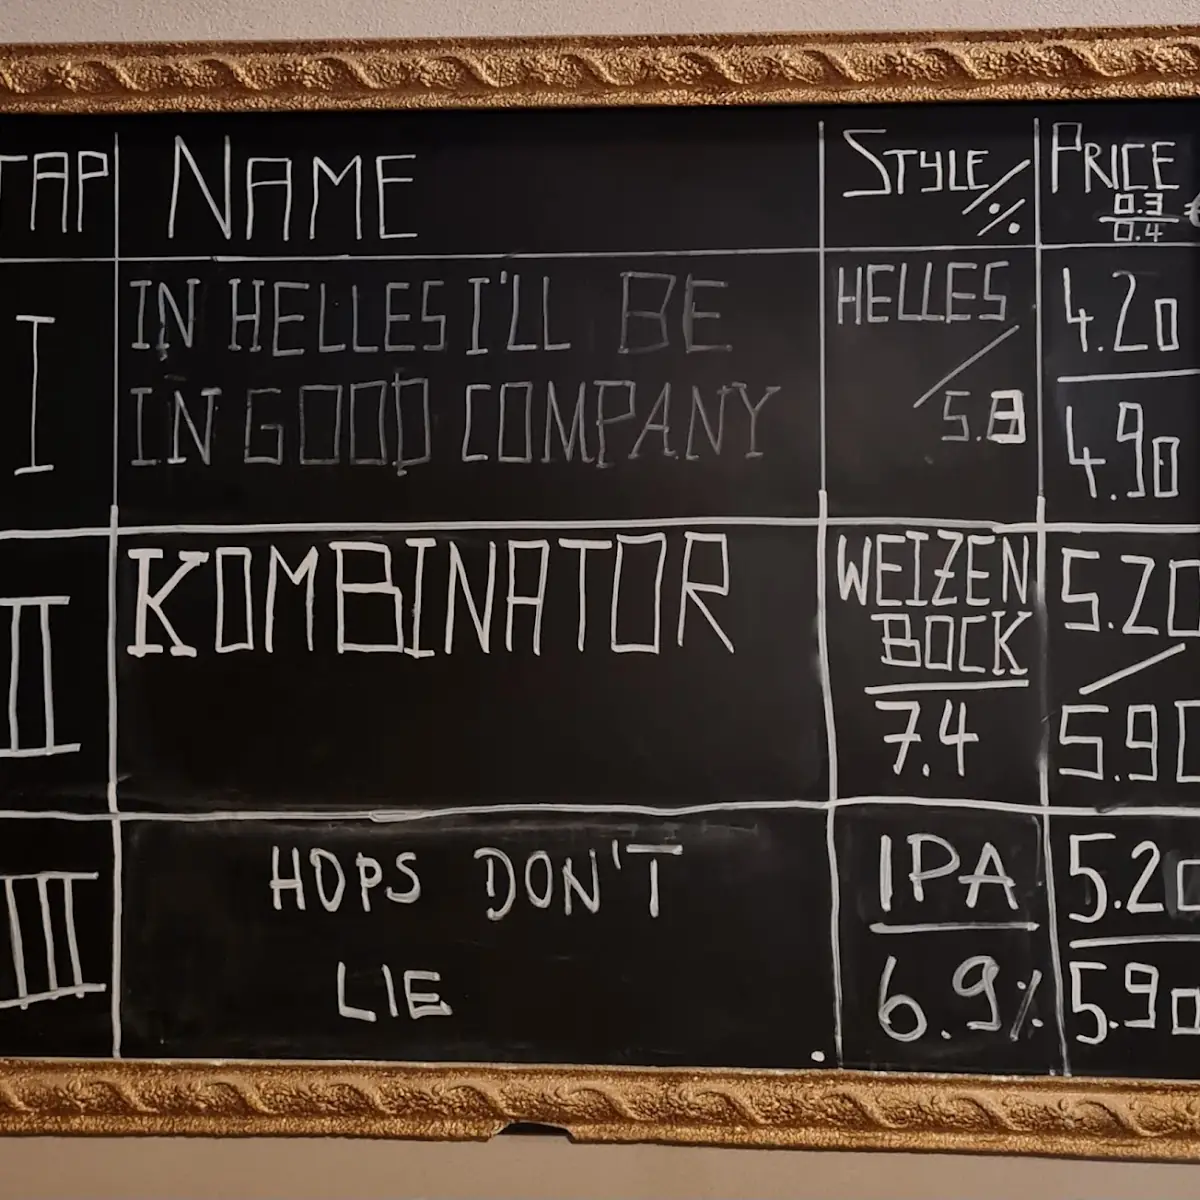 TAP NAME STYLE/% PRICE
0.3
0.4
I IN HELLES I'LL BE HELLES 4.20
IN GOOD COMPANY 5.8 4.90
II KOMBINATOR WEIZEN 5.20
BOCK
7.4 5.90
III HOPS DON'T IPA 5.20
LIE 6.9% 5.90